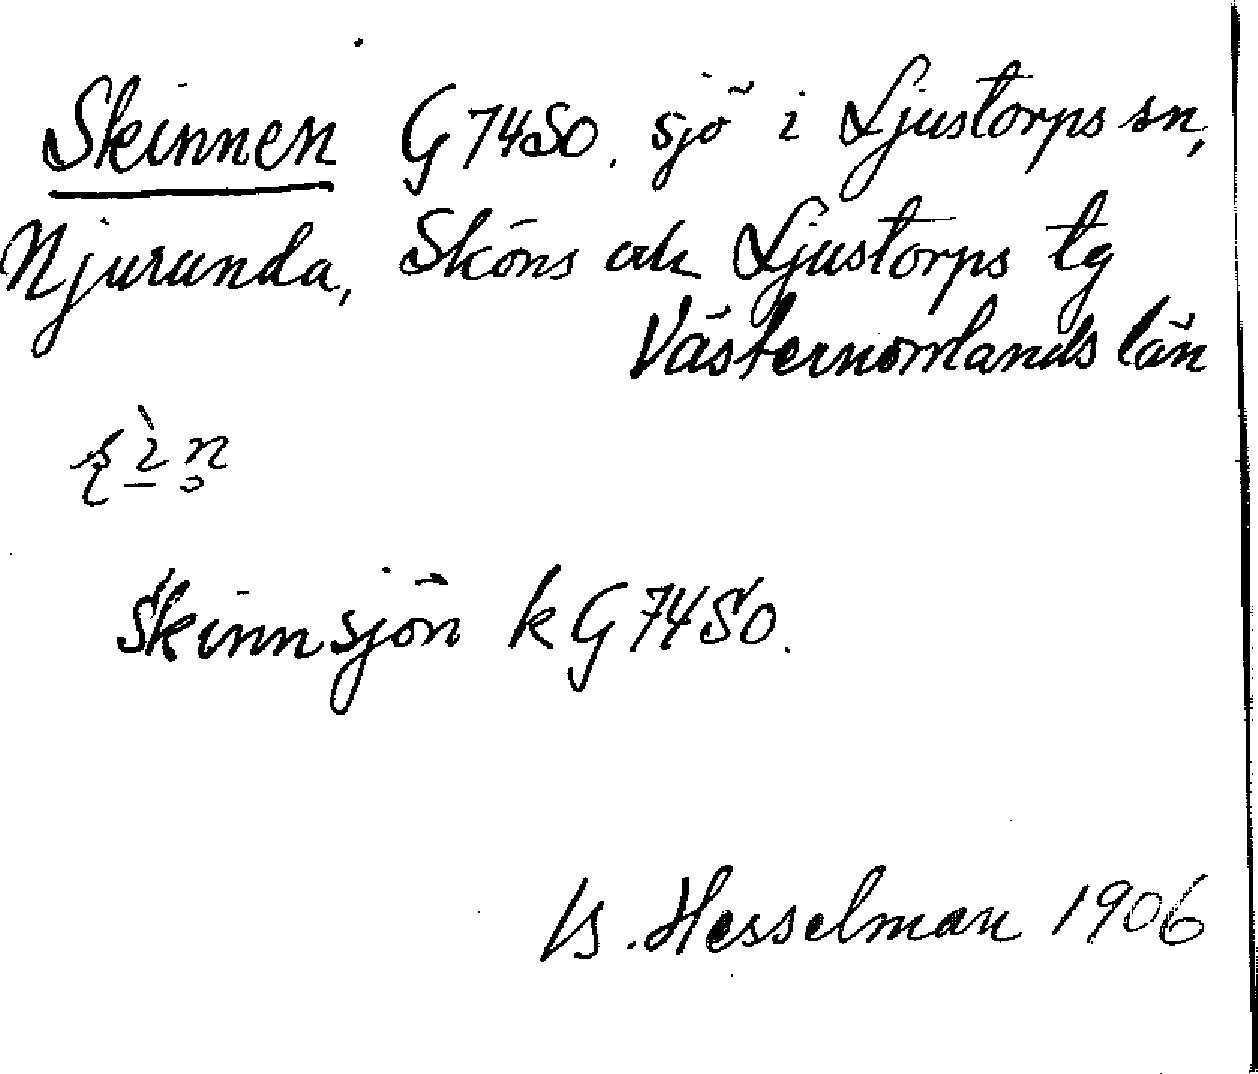 Skinnen G 74 SO. sjö i Ljustorps sn,
Njurunda, Sköns och Ljustorps tg
Västernorrlands län
Skinnsjön k G 74 SO.
B. Hesselman 1906